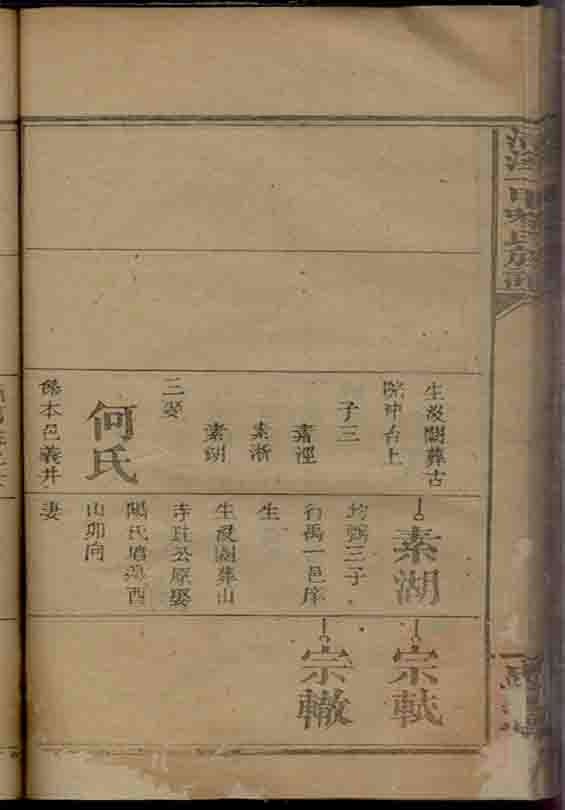 生沒闕葬古
院沖台上
子三
素涇
素淅
素朔
三娶
何氏
係本邑義井
素湖
均鵷三子
行禹一邑庠
生
生沒闕葬山
寺莊公原娶
陽氏墳後酉
山卯向
妻
宗軾
宗轍